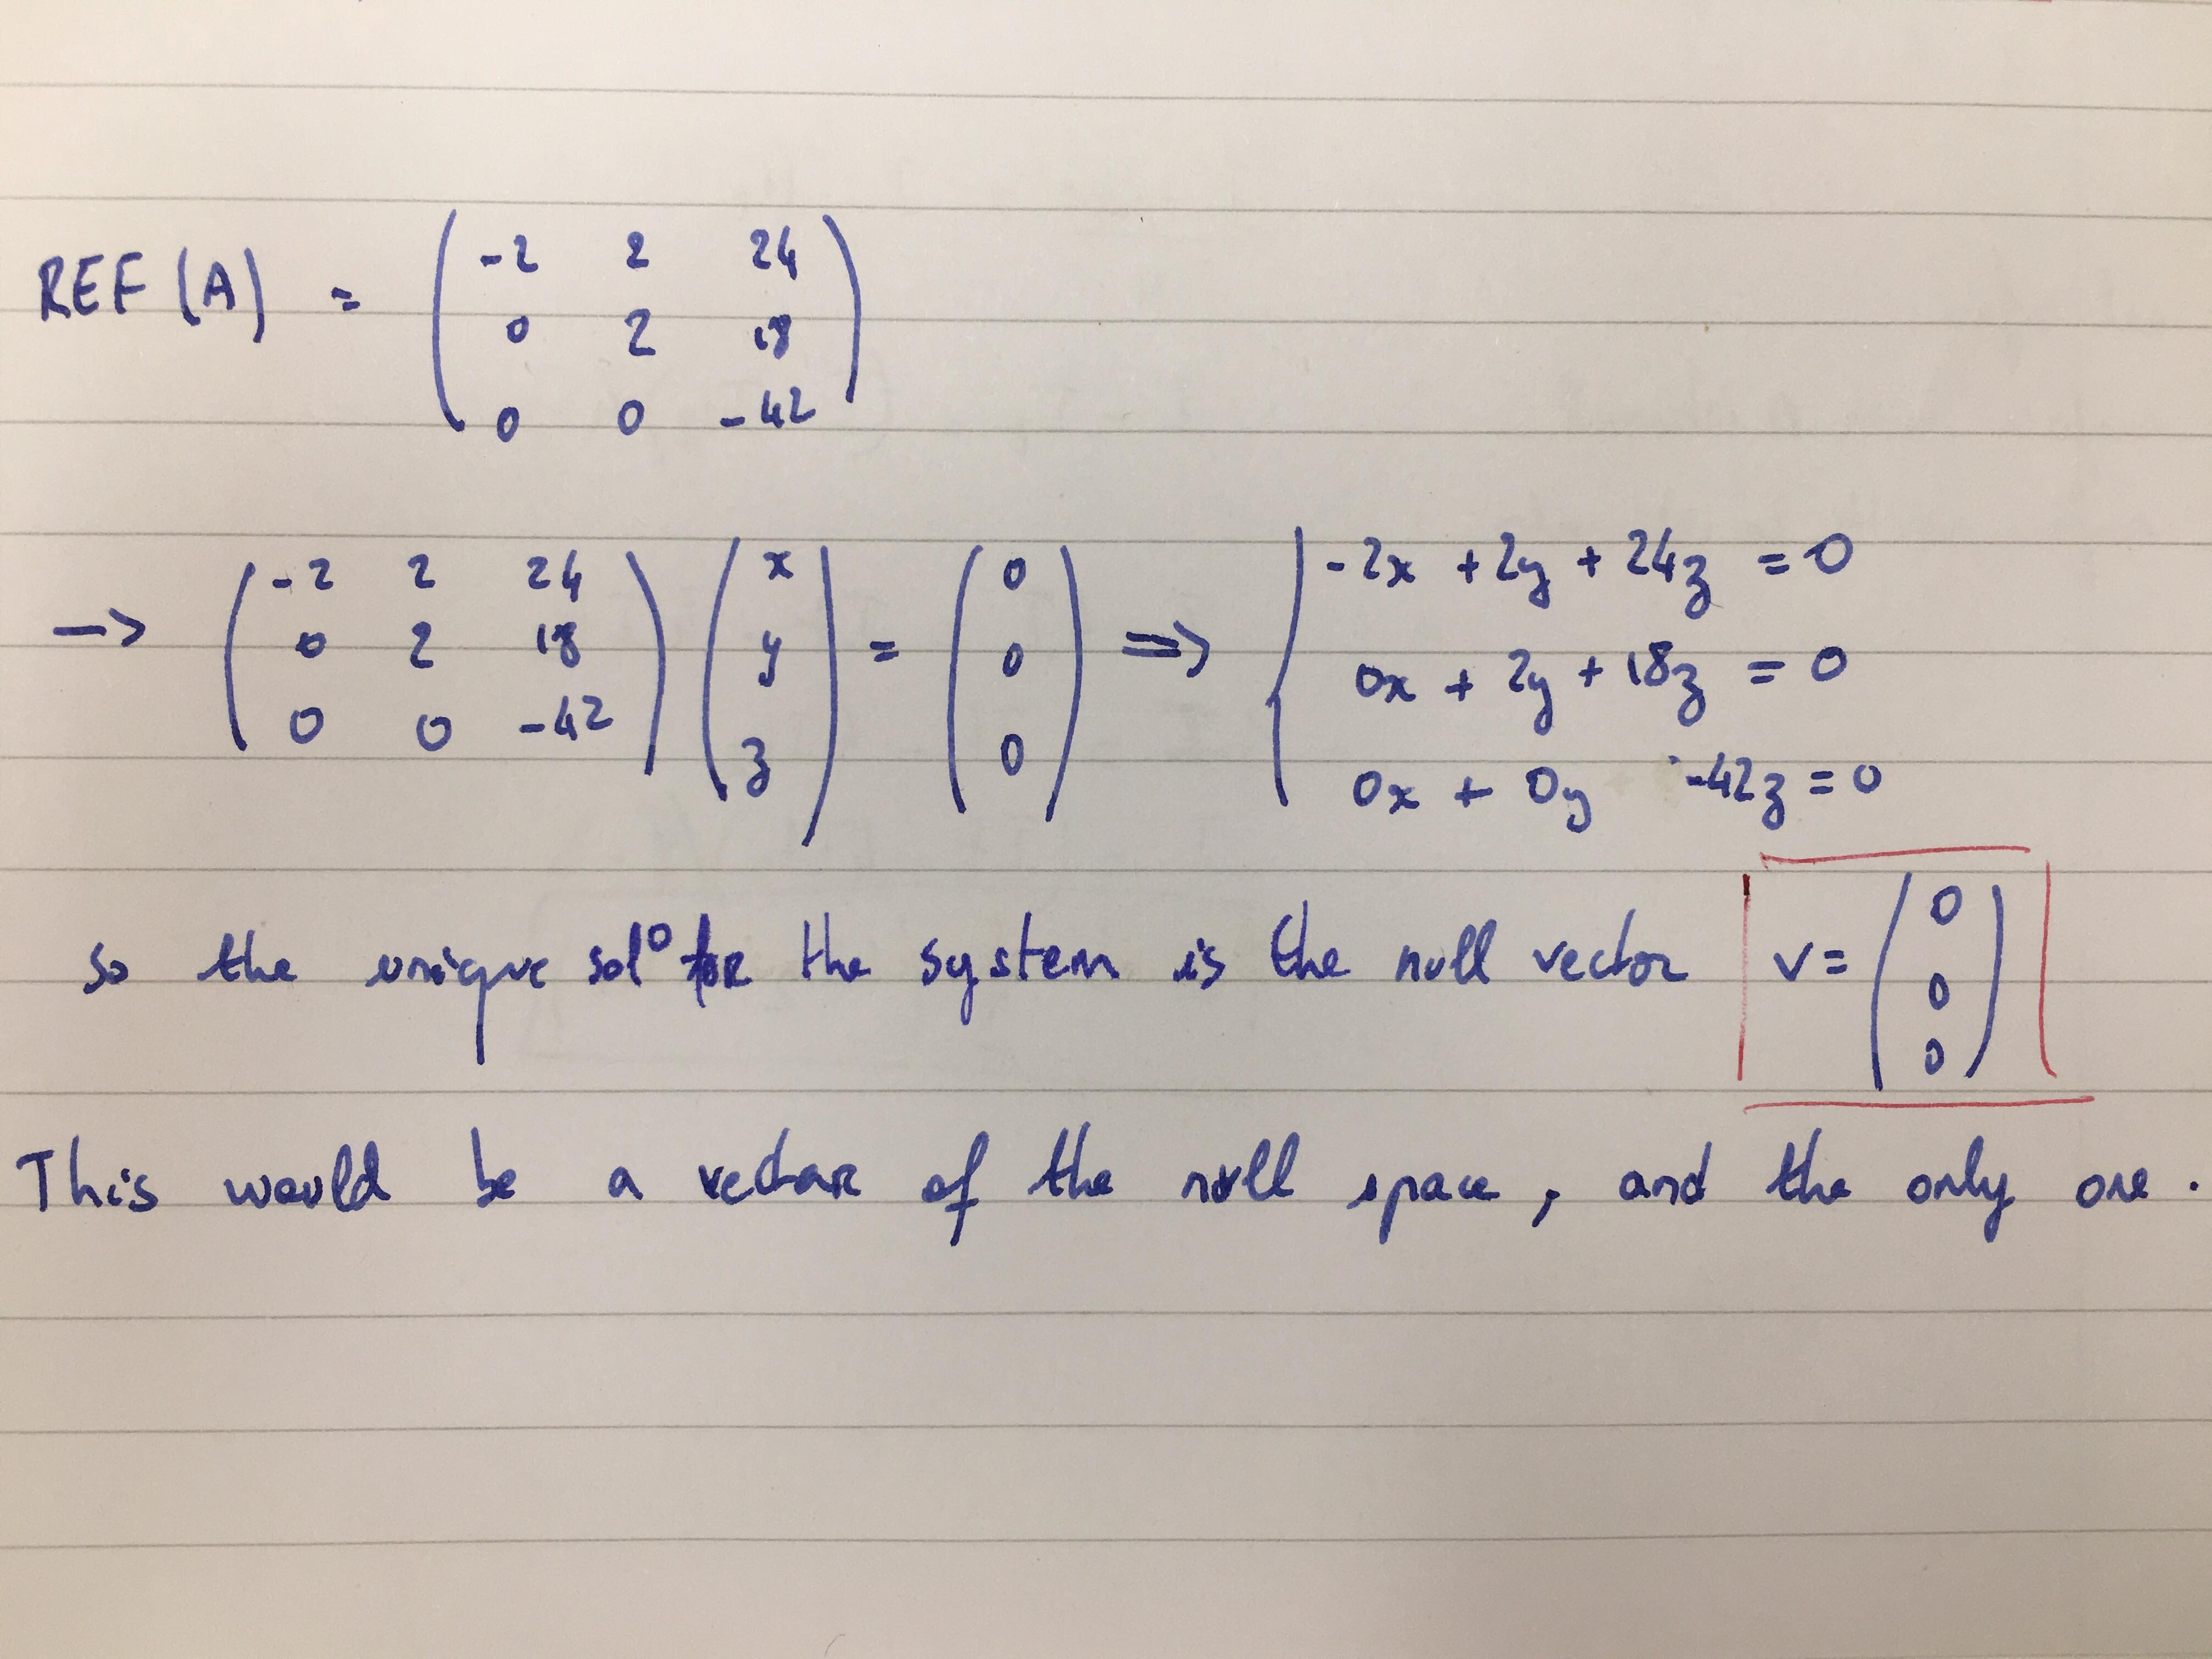 REF (A) = ( -2 2 24
0 2 18
0 0 -42 )
-> ( -2 2 24
0 2 18
0 0 -42 ) ( x
y
z ) = ( 0
0
0 ) => { -2x + 2y + 24z = 0
0x + 2y + 18z = 0
0x + 0y -42z = 0
so the unique sol° for the system is the null vector v = ( 0
0
0 )
This would be a vector of the null space, and the only one.